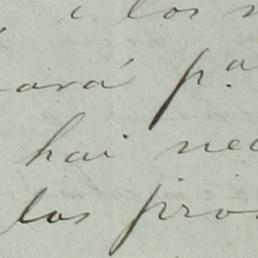 i los
ará p.ª
hai nec
los pro